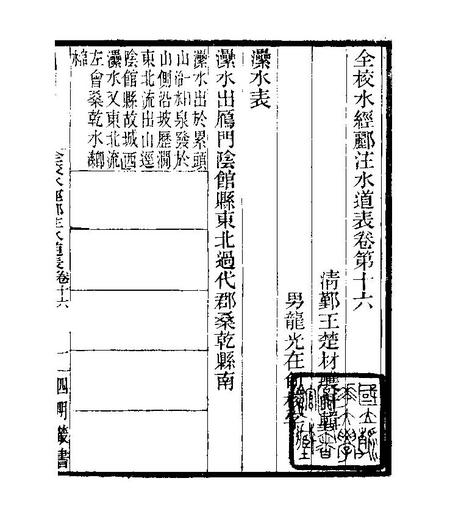 全校水經酈注水道表卷第十六
清鄞王楚材
男龍光在
㶟水表
㶟水出鴈門陰館縣東北過代郡桑乾縣南
㶟水出於累頭
山泉發於
山側沿坡歷澗
東北流出山逕
陰館縣故城西
㶟水又東北流
左會桑乾水縣
全校水經酈注水道表卷十六
四明叢書